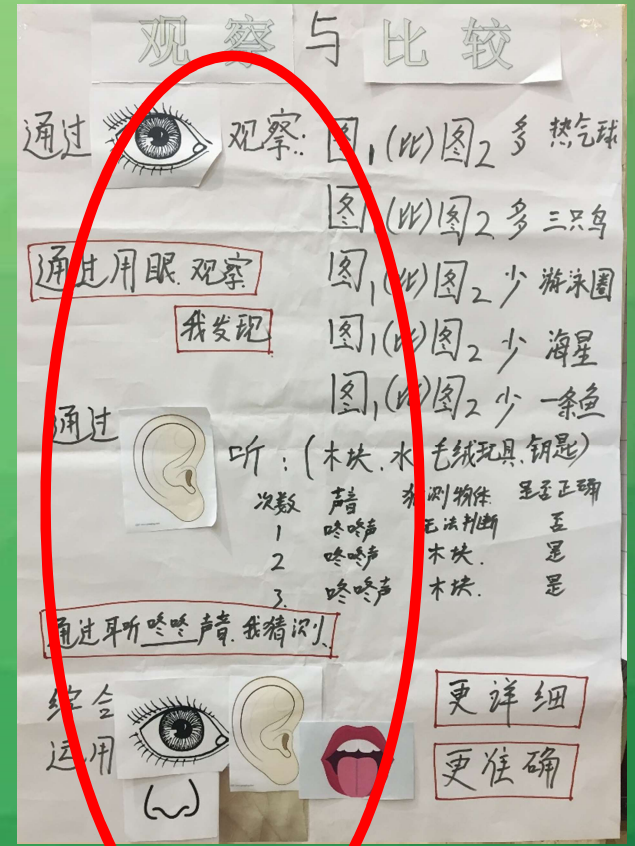 观察与比较
通过 观察: 图1(比)图2 多 热气球
图1(比)图2 多 三只鸟
通过用眼.观察
图1(比)图2 少 游泳圈
我发现
图1(比)图2 少 海星
图1(比)图2 少 一条鱼
通过 听:(木块.水.毛绒玩具.钥匙)
次数 声音 猜测物体 是否正确
1 咚咚声 无法判断 否
2 咚咚声 木块. 是
3. 咚咚声 木块. 是
通过耳听咚咚声音.我猜测
综合
运用
更详细
更准确